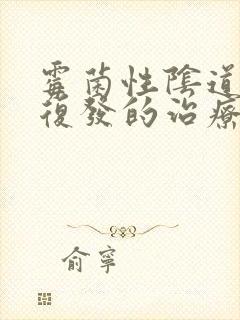 霉菌性陰道
復發的治療
俞寧